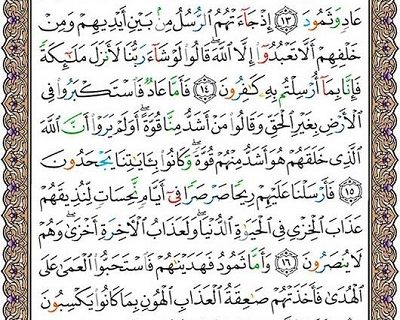 عَادٍ وَثَمُودَ ١٣ إِذْ جَآءَتْهُمُ ٱلرُّسُلُ مِنۢ بَيْنِ أَيْدِيهِمْ وَمِنْ
خَلْفِهِمْ أَلَّا تَعْبُدُوٓا۟ إِلَّا ٱللَّهَ ۖ قَالُوا۟ لَوْ شَآءَ رَبُّنَا لَأَنزَلَ مَلَـٰٓئِكَةً
فَإِنَّا بِمَآ أُرْسِلْتُم بِهِۦ كَـٰفِرُونَ ١٤ فَأَمَّا عَادٌ فَٱسْتَكْبَرُوا۟ فِى
ٱلْأَرْضِ بِغَيْرِ ٱلْحَقِّ وَقَالُوا۟ مَنْ أَشَدُّ مِنَّا قُوَّةً ۖ أَوَلَمْ يَرَوْا۟ أَنَّ ٱللَّهَ
ٱلَّذِى خَلَقَهُمْ هُوَ أَشَدُّ مِنْهُمْ قُوَّةً ۖ وَكَانُوا۟ بِـَٔايَـٰتِنَا يَجْحَدُونَ
١٥ فَأَرْسَلْنَا عَلَيْهِمْ رِيحًا صَرْصَرًا فِىٓ أَيَّامٍ نَّحِسَاتٍ لِّنُذِيقَهُمْ
عَذَابَ ٱلْخِزْىِ فِى ٱلْحَيَوٰةِ ٱلدُّنْيَا ۖ وَلَعَذَابُ ٱلْـَٔاخِرَةِ أَخْزَىٰ ۖ وَهُمْ
لَا يُنصَرُونَ ١٦ وَأَمَّا ثَمُودُ فَهَدَيْنَـٰهُمْ فَٱسْتَحَبُّوا۟ ٱلْعَمَىٰ عَلَى
ٱلْهُدَىٰ فَأَخَذَتْهُمْ صَـٰعِقَةُ ٱلْعَذَابِ ٱلْهُونِ بِمَا كَانُوا۟ يَكْسِبُونَ